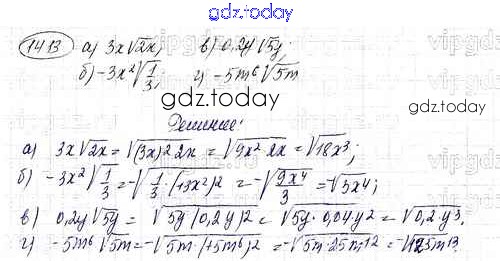 gdz.today
1413 а) 3x√2x; в) 0,2y√5y;
б) -3x²√1/3; г) -5m⁶√5m
gdz.today
Решение:
а) 3x√2x = √(3x)²2x = √9x²·2x = √18x³;
б) -3x²√1/3 = -√1/3·(+3x²)² = -√9x⁴/3 = -√3x⁴;
в) 0,2y√5y = √5y(0,2y)² = √5y·0,04y² = √0,2y³.
г) -5m⁶√5m = -√5m·(+5m⁶)² = -√5m·25m¹² = -√125m¹³.
gdz.today